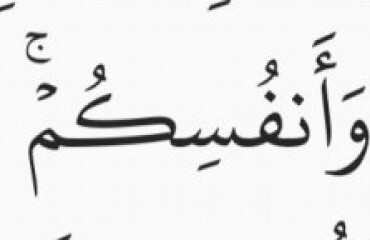 وَأَنفُسِكُمْ ۚ